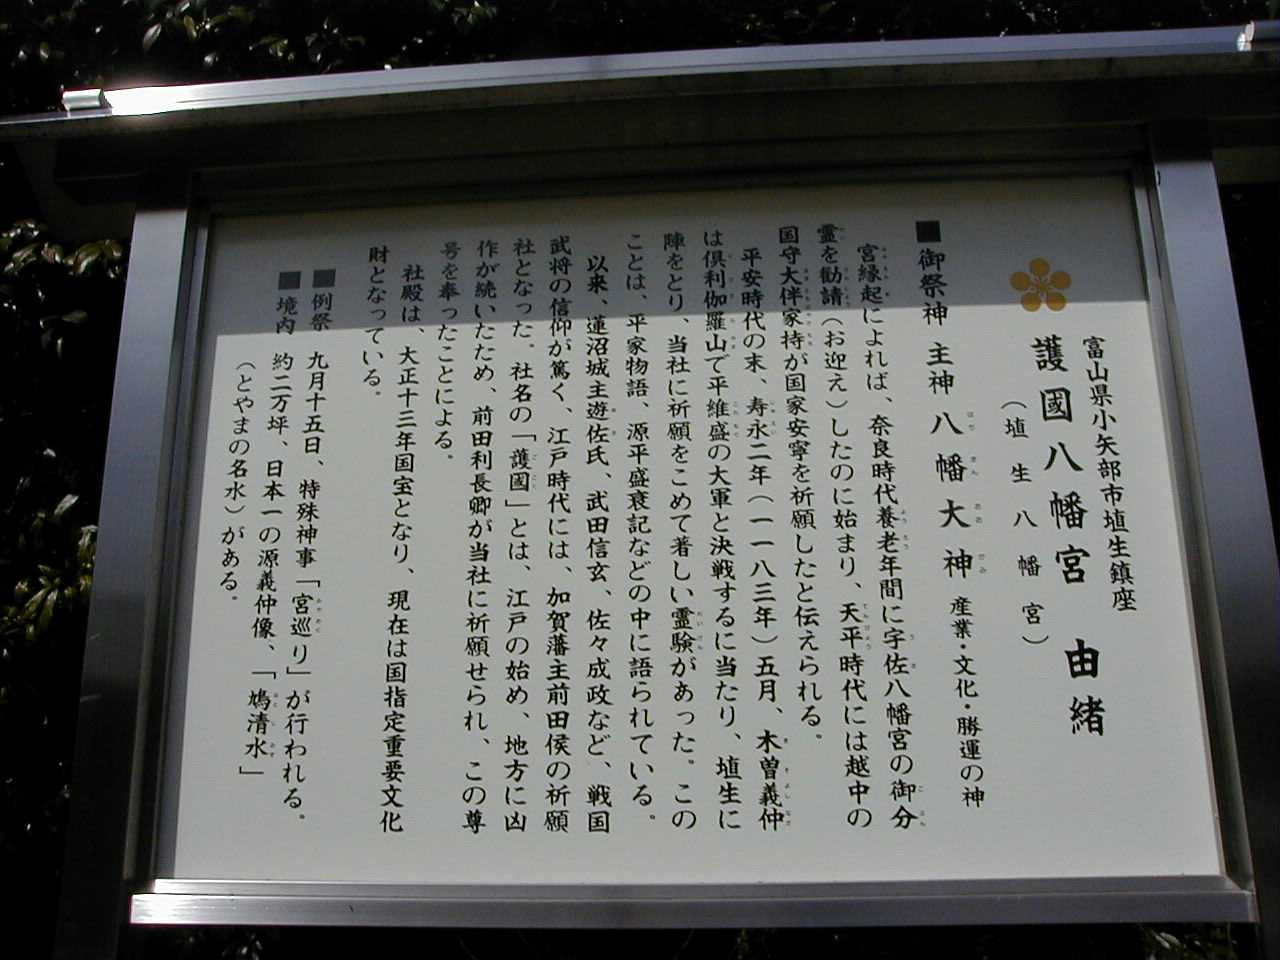 富山県小矢部市埴生鎮座
護國八幡宮 由緒
(埴生八幡宮)
■御祭神 主神 八幡大神 産業・文化・勝運の神
宮縁起によれば、奈良時代養老年間に宇佐八幡宮の御分
霊を勧請(お迎え)したのに始まり、天平時代には越中の
国守大伴家持が国家安寧を祈願したと伝えられる。
平安時代の末、寿永二年(一一八三年)五月、木曽義仲
は倶利伽羅山で平維盛の大軍と決戦するに当たり、埴生に
陣をとり、当社に祈願をこめて著しい霊験があった。この
ことは、平家物語、源平盛衰記などの中に語られている。
以来、蓮沼城主遊佐氏、武田信玄、佐々成政など、戦国
武将の信仰が篤く、江戸時代には、加賀藩主前田侯の祈願
社となった。社名の「護國」とは、江戸の始め、地方に凶
作が続いたため、前田利長卿が当社に祈願せられ、この尊
号を奉ったことによる。
社殿は、大正十三年国宝となり、現在は国指定重要文化
財となっている。
■例祭 九月十五日、特殊神事「宮巡り」が行われる。
■境内 約二万坪、日本一の源義仲像、「鳩清水」
(とやまの名水)がある。